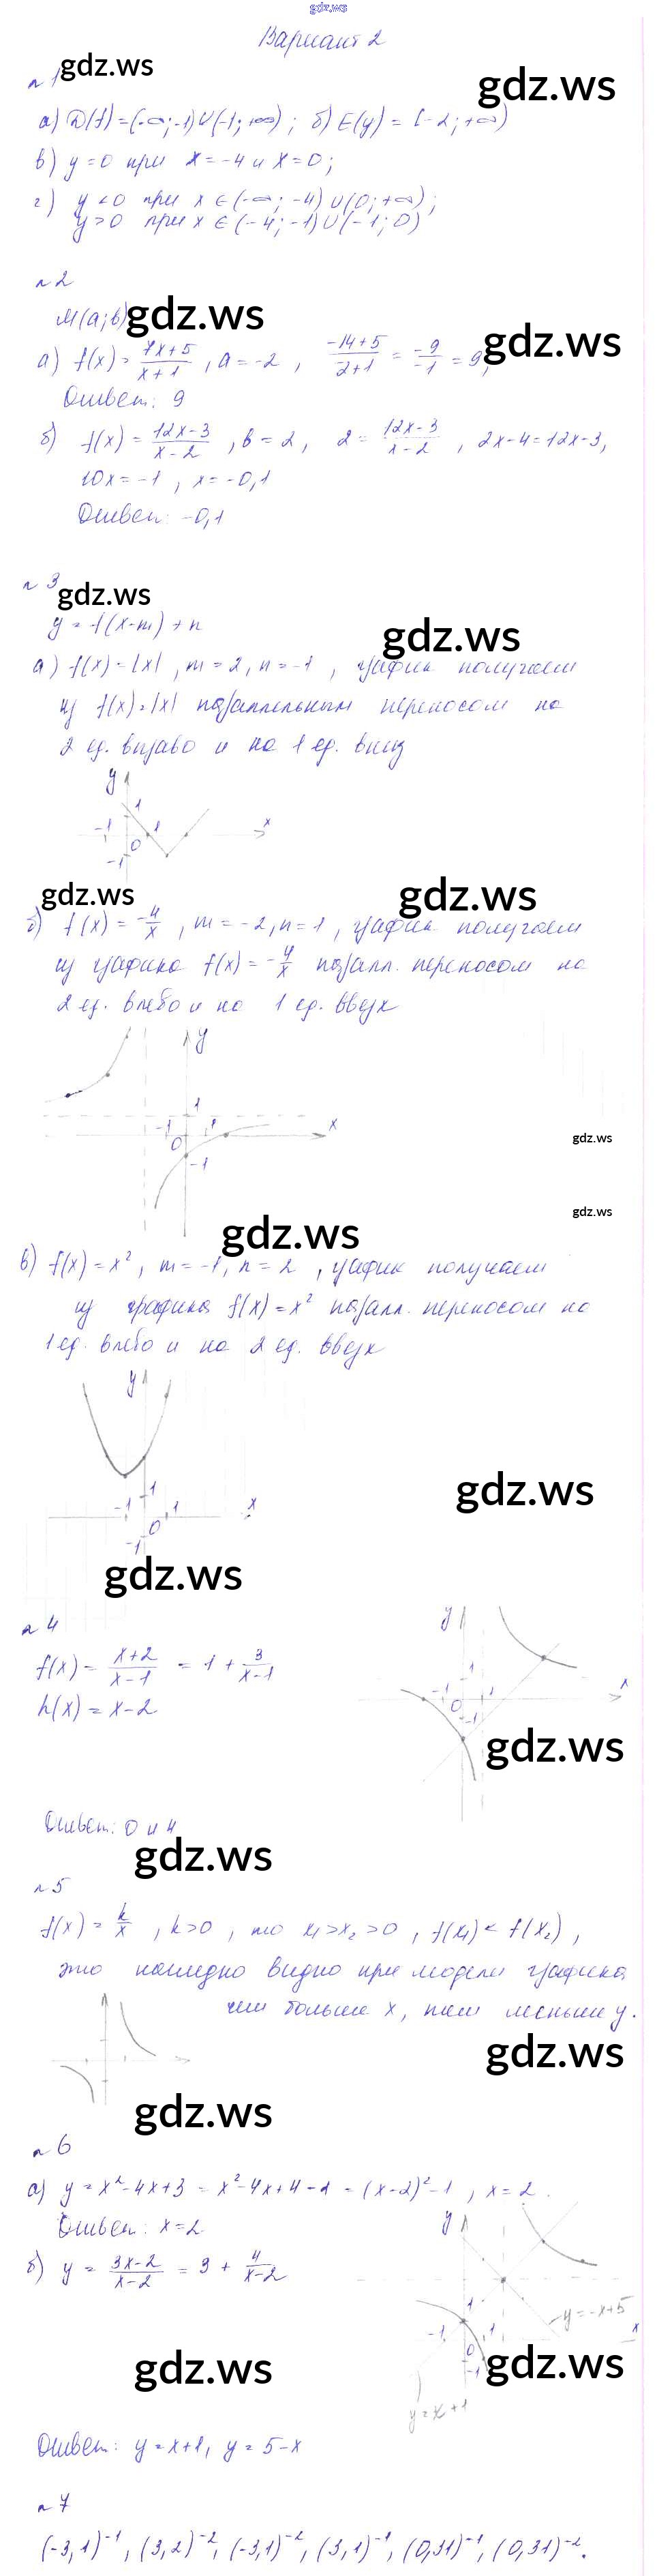 gdz.ws
Вариант 2
gdz.ws
n 1
gdz.ws
а) D(f) = (-∞; -1) U (-1; +∞) ; б) E(y) = [-2; +∞)
в) y = 0 при x = -4 и x = 0;
г) y < 0 при x ∈ (-∞; -4) U (0; +∞);
y > 0 при x ∈ (-4; -1) U (-1; 0)
n 2
M(a; b) gdz.ws
а) f(x) = 7x+5/x+1 , a = -2 , -14+5/2+1 = -9/-1 = 9; gdz.ws
Ответ: 9
б) f(x) = 12x-3/x-2 , b = 2 , 2 = 12x-3/x-2 , 2x-4 = 12x-3,
10x = -1 , x = -0,1
Ответ: -0,1
n 3
gdz.ws
y = f(x-m) + n
gdz.ws
а) f(x) = |x| , m = 2 , n = -1 , график получаем
из f(x) = |x| параллельным переносом на
2 ед. вправо и на 1 ед. вниз
y
1
-1 0 1 x
-1
gdz.ws gdz.ws
б) f(x) = -4/x , m = -2, n = 1 , график получаем
из графика f(x) = -4/x паралл. переносом на
2 ед. влево и на 1 ед. вверх
y
1
-1 0 1 x
-1
gdz.ws
gdz.ws
gdz.ws
в) f(x) = x² , m = -1, n = 2 , график получаем
из графика f(x) = x² паралл. переносом на
1 ед. влево и на 2 ед. вверх
y
1
-1 0 1 x
-1
gdz.ws
gdz.ws
n 4
f(x) = x+2/x-1 = 1 + 3/x-1
h(x) = x-2
y
1
-1 0 1 x
-1
gdz.ws
Ответ: 0 и 4
gdz.ws
n 5
f(x) = k/x , k>0 , то x₁ > x₂ > 0 , f(x₁) < f(x₂) ,
это наглядно видно при модели графика
чем больше x, тем меньше y.
gdz.ws
gdz.ws
n 6
а) y = x²-4x+3 = x²-4x+4-1 = (x-2)²-1 , x = 2 .
Ответ: x = 2
б) y = 3x-2/x-2 = 3 + 4/x-2
y
y = -x+5
1
-1 0 1 x
-1
y = x+1
gdz.ws gdz.ws
Ответ: y = x+1, y = 5-x
n 7
(-3,1)⁻¹, (3,2)⁻², (-3,1)⁻², (3,1)⁻¹, (0,31)⁻¹, (0,31)⁻².